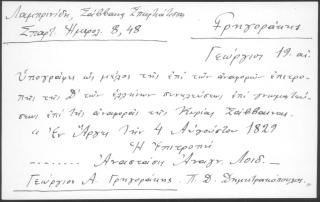 Λαμπρινίδη, Σάββαινα Σπαρτιάτου
Σπαρτ. Ημερολ. 8, 48
Γρηγοράκης
Γεώργιος 19. αι.
Υπογράφει ως μέλος της επί των αναφορών επιτροπής
της Δ' των Ελλήνων συνελεύσεως επί γνωματεύσεως
επί της αναφοράς της Κυρίας Σάββαινας.
"Εν Άργει την 4 Αυγούστου 1829
Η Επιτροπή
......... Αναστάσης Αναγν. Λοιδ. —
Γεώργιος Α. Γρηγοράκης. Π. Δ. Δημητρακόπουλος."